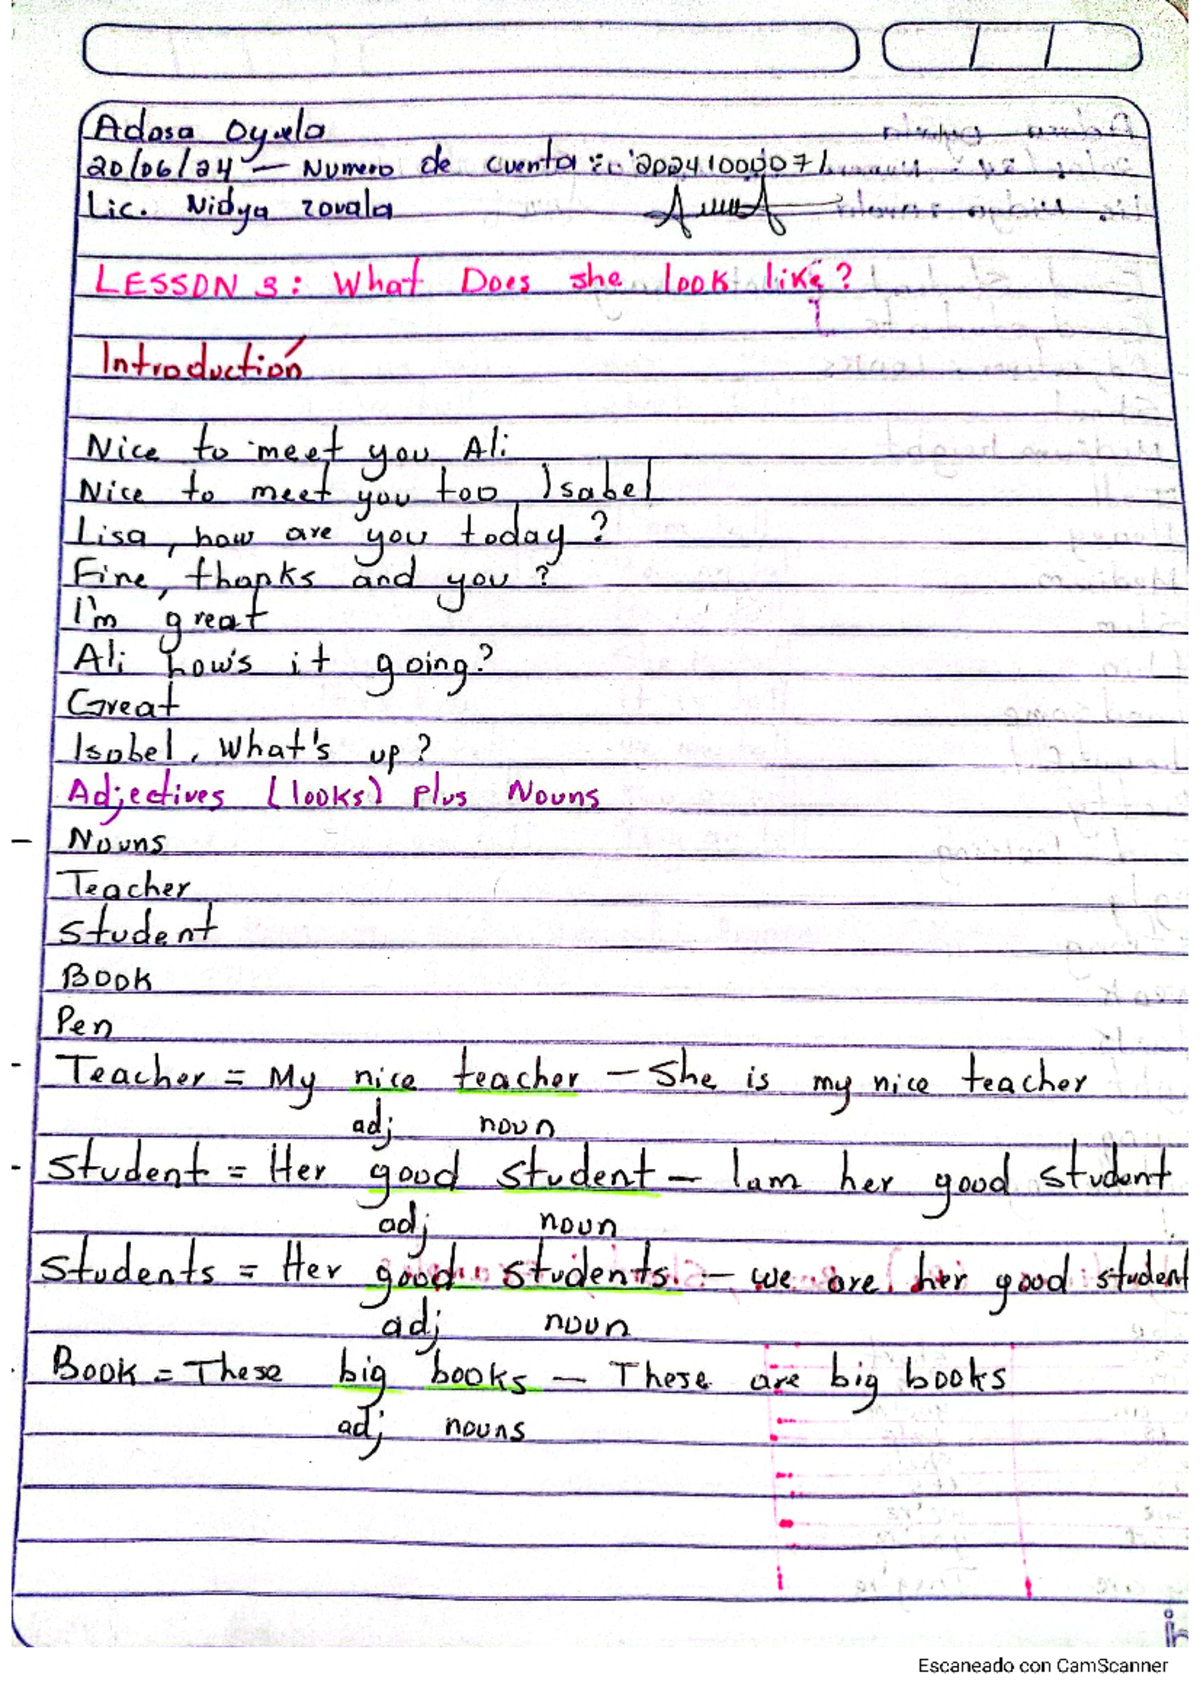 Adasa Oyuela
20/06/24 — Numero de cuenta: 20241000071
Lic. Nidya zavala
LESSON 3: What Does she look like?
Introduction
Nice to meet you Ali
Nice to meet you too, Isabel
Lisa, how are you today?
Fine, thanks and you?
I'm great
Ali how's it going?
Great
Isabel, What's up?
Adjectives (looks) plus Nouns
- Nouns
Teacher
Student
Book
Pen
- Teacher = My nice teacher — She is my nice teacher
adj noun
- Student = Her good student — I am her good student
adj noun
Students = Her good students — we are her good student
adj noun
Book = These big books — These are big books
adj nouns
Escaneado con CamScanner